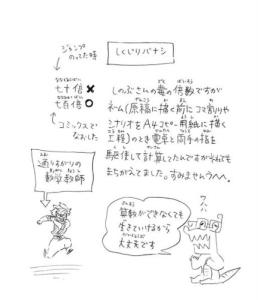 しくじりバナシ
ジャンプ
のってた時
ななじゅうばい
七十倍 ✖
七百倍 〇
コミックスで
なおした
しのぶさんの毒の倍数ですが
ネーム(原稿に描く前にコマ割りや
シナリオをA4コピー用紙に描く
工程)のとき電卓と両手の指を
駆使して計算してたんですがそれでも
まちがってました。すみませんうへへ。
通りすがりの
数学教師
算数ができなくても
生きていけるから
大丈夫です
ワハハ